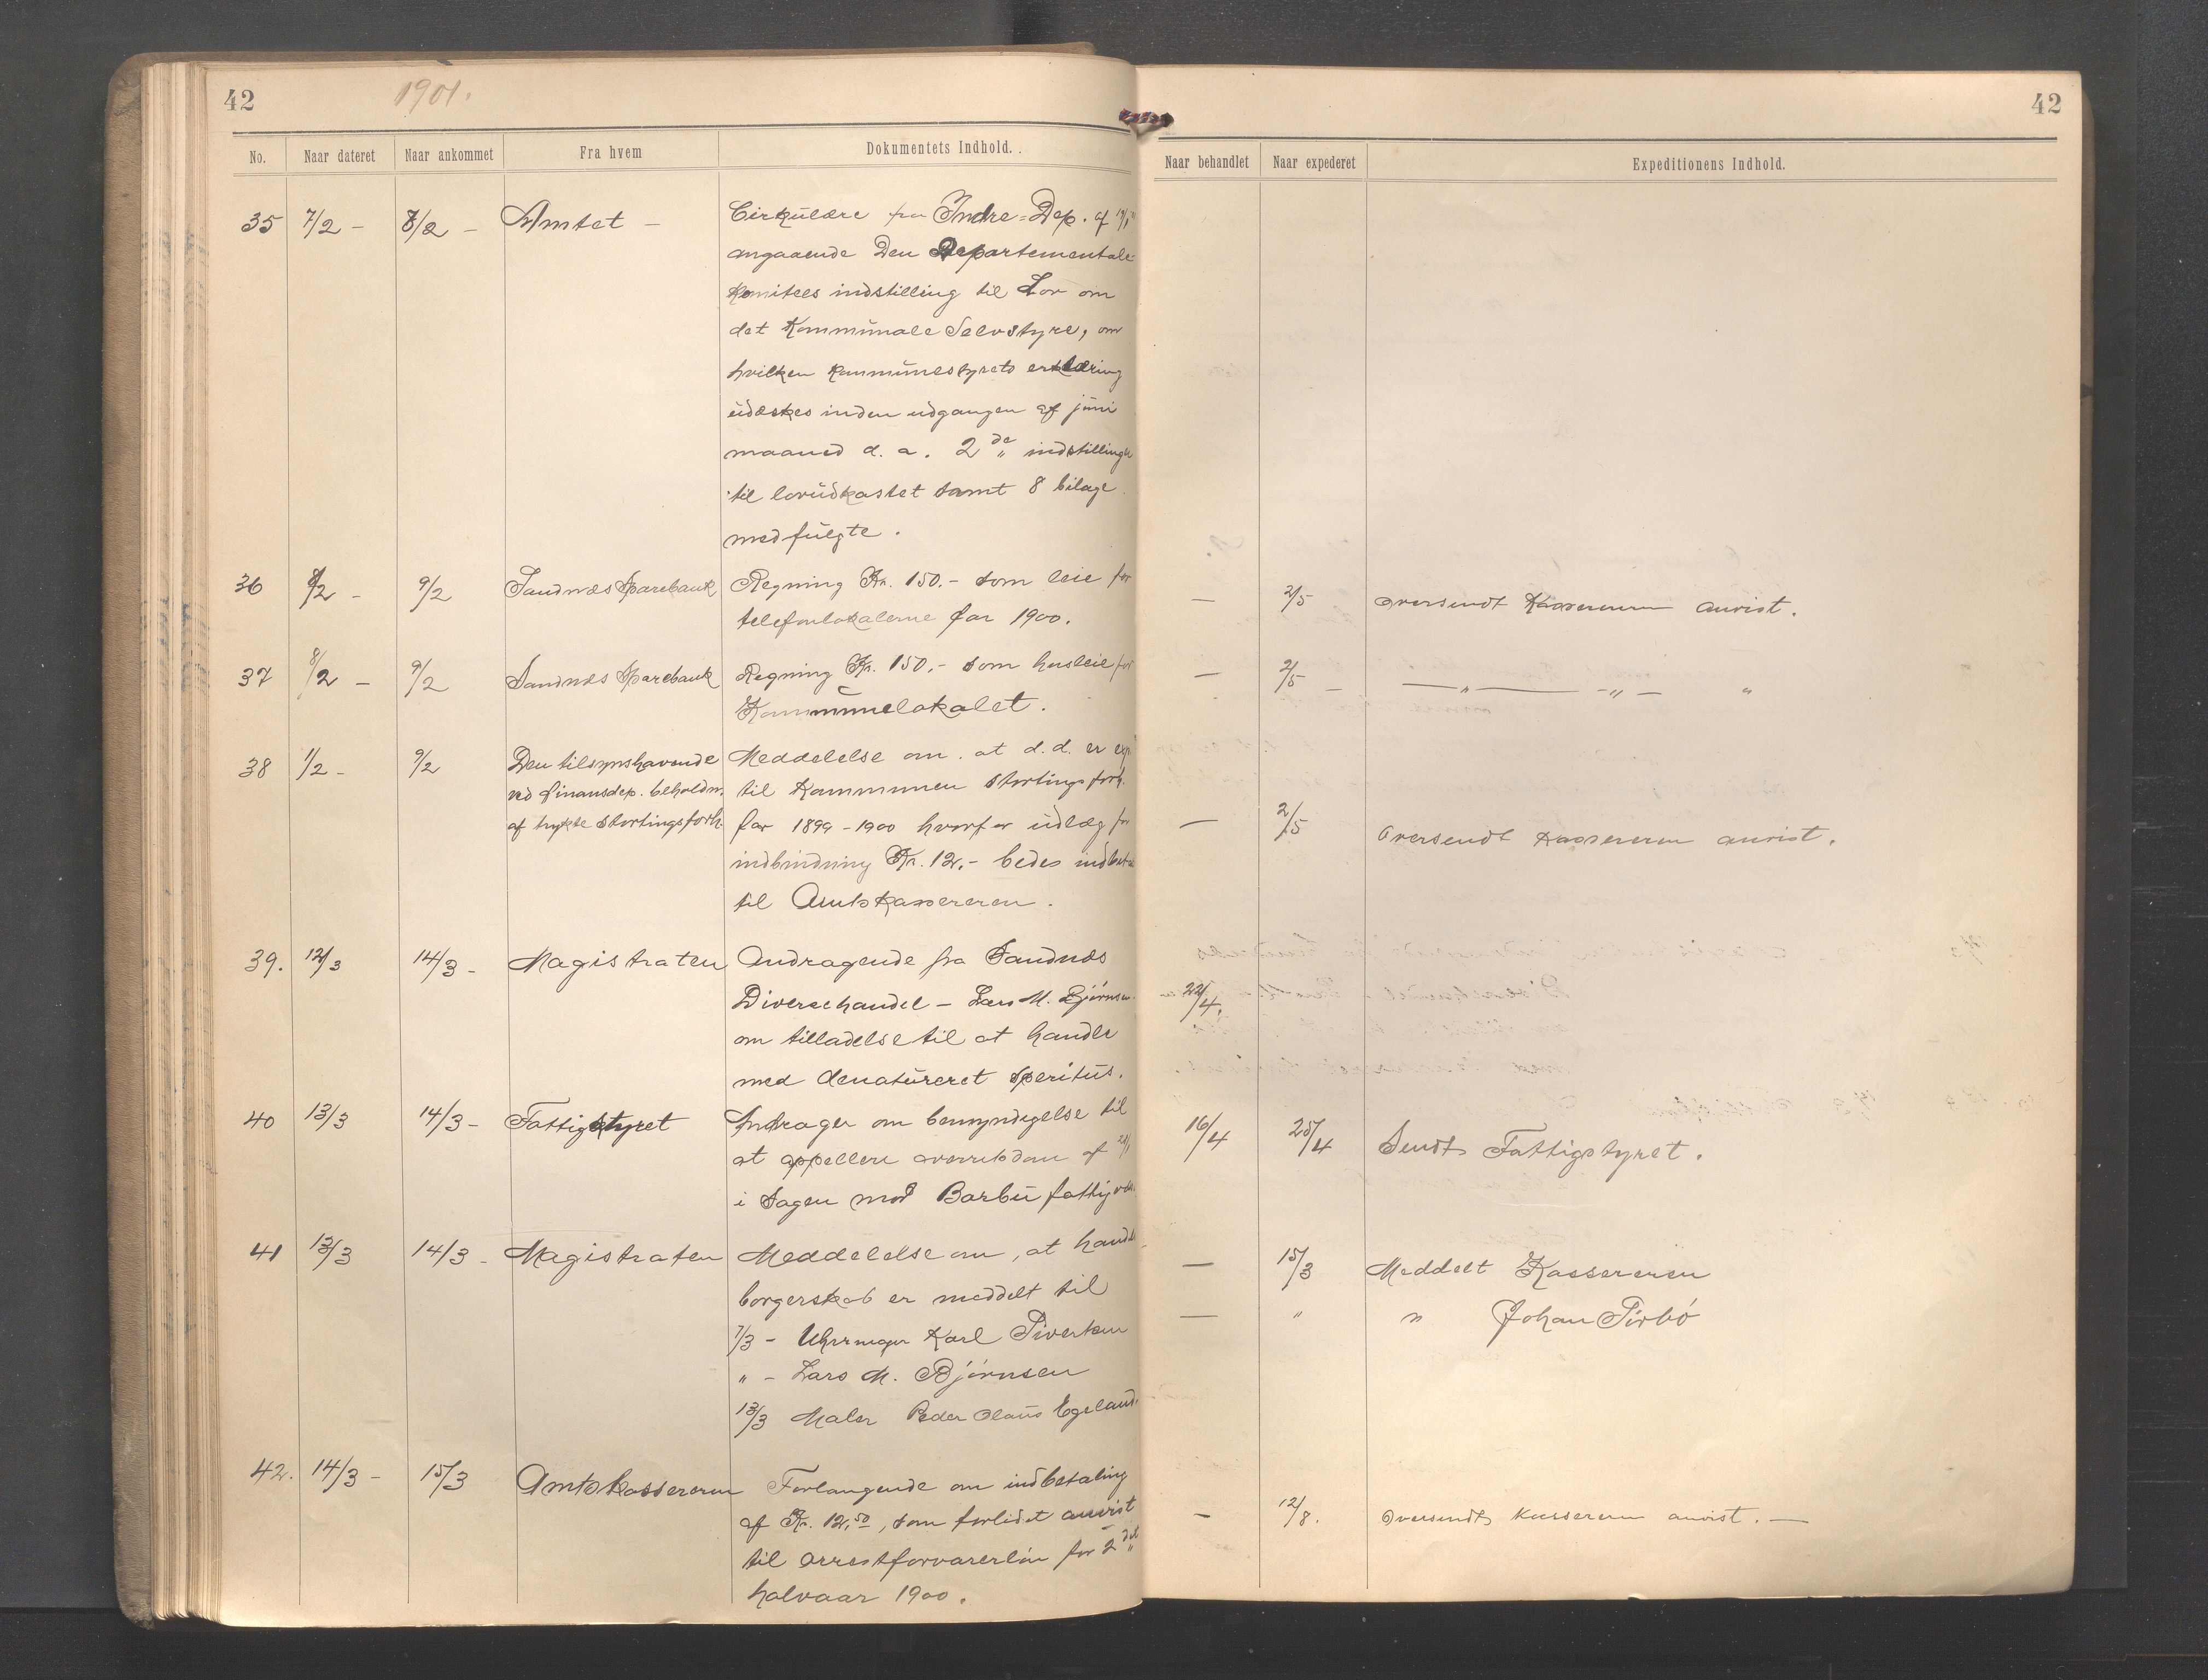 42
1901.
No. Naar dateret Naar ankommet Fra hvem Dokumentets Indhold.
35 7/2 - 8/2 - Amtet - Cirkulære fra Indre-Dep. af
angaaende Den Departementale
Komitees indstilling til Lov om
det Kommunale Selvstyre, om
hvilken Kommunestyrets erklæring
udæskes inden udgangen af juni
maaned d. a. 2de indstillinger
til lovudkastet samt 8 bilage
medfulgte.
36 8/2 - 9/2 Sandnæs Sparebank Regning Kr. 150.- som leie for
telefonlokalerne for 1900.
37 8/2 - 9/2 Sandnæs Sparebank Regning Kr. 150.- som husleie for
Kommunelokalet.
38 1/2 - 9/2 Den tilsynshavende Meddelelse om at d.d. er exp.
ved finansdep. beholdn. til Kommunen stortingsforh.
af trykte Stortingsforh. for 1899-1900 hvorfor udlæg for
indbinding Kr. 12.- bedes indbet.
til Amtskassereren.
39. 12/3 14/3 - Magistraten Andragende fra Sandnæs
Diversehandel - Lars M. Bjørnsen
om tilladelse til at handle
med denatureret Speritus.
40 13/3 14/3 - Fattigstyret Andrager om bemyndigelse til
at appellere overretsdom af
i Sagen mod Barbu fattigv.
41 13/3 14/3 - Magistraten Meddelelse om, at handels
borgerskab er meddelt til
7/3 - Uhrmager Karl
" - Lars M. Bjørnsen
13/3 Maler Peder Olaus Egeland.
42. 14/3 - 15/3 Amtskassereren Forlangende om indbetaling
af Kr. 12,50, som forlidet anvist
til arrestforvarerløn for 2det
halvaar 1900.
42
Naar behandlet Naar expederet Expeditionens Indhold.
— 2/5 Oversendt Kassereren anvist.
— 2/5 - —"— -"- "
— 2/5 Oversendt Kassereren anvist.
22/4.
16/4 25/4 Sendt Fattigstyret.
— 15/3 Meddelt Kassereren
— " " Johan
- 12/8. Oversendt Kassereren anvist. —